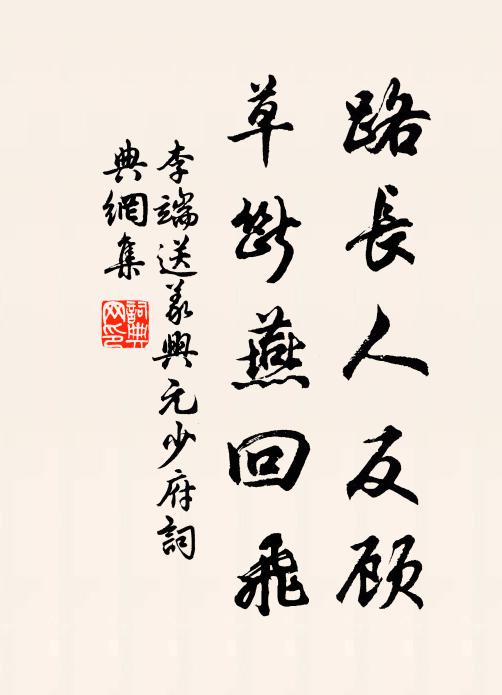 路長人反顾
草断燕回飛
李端送義興元少府詞
典網集
詞典网印